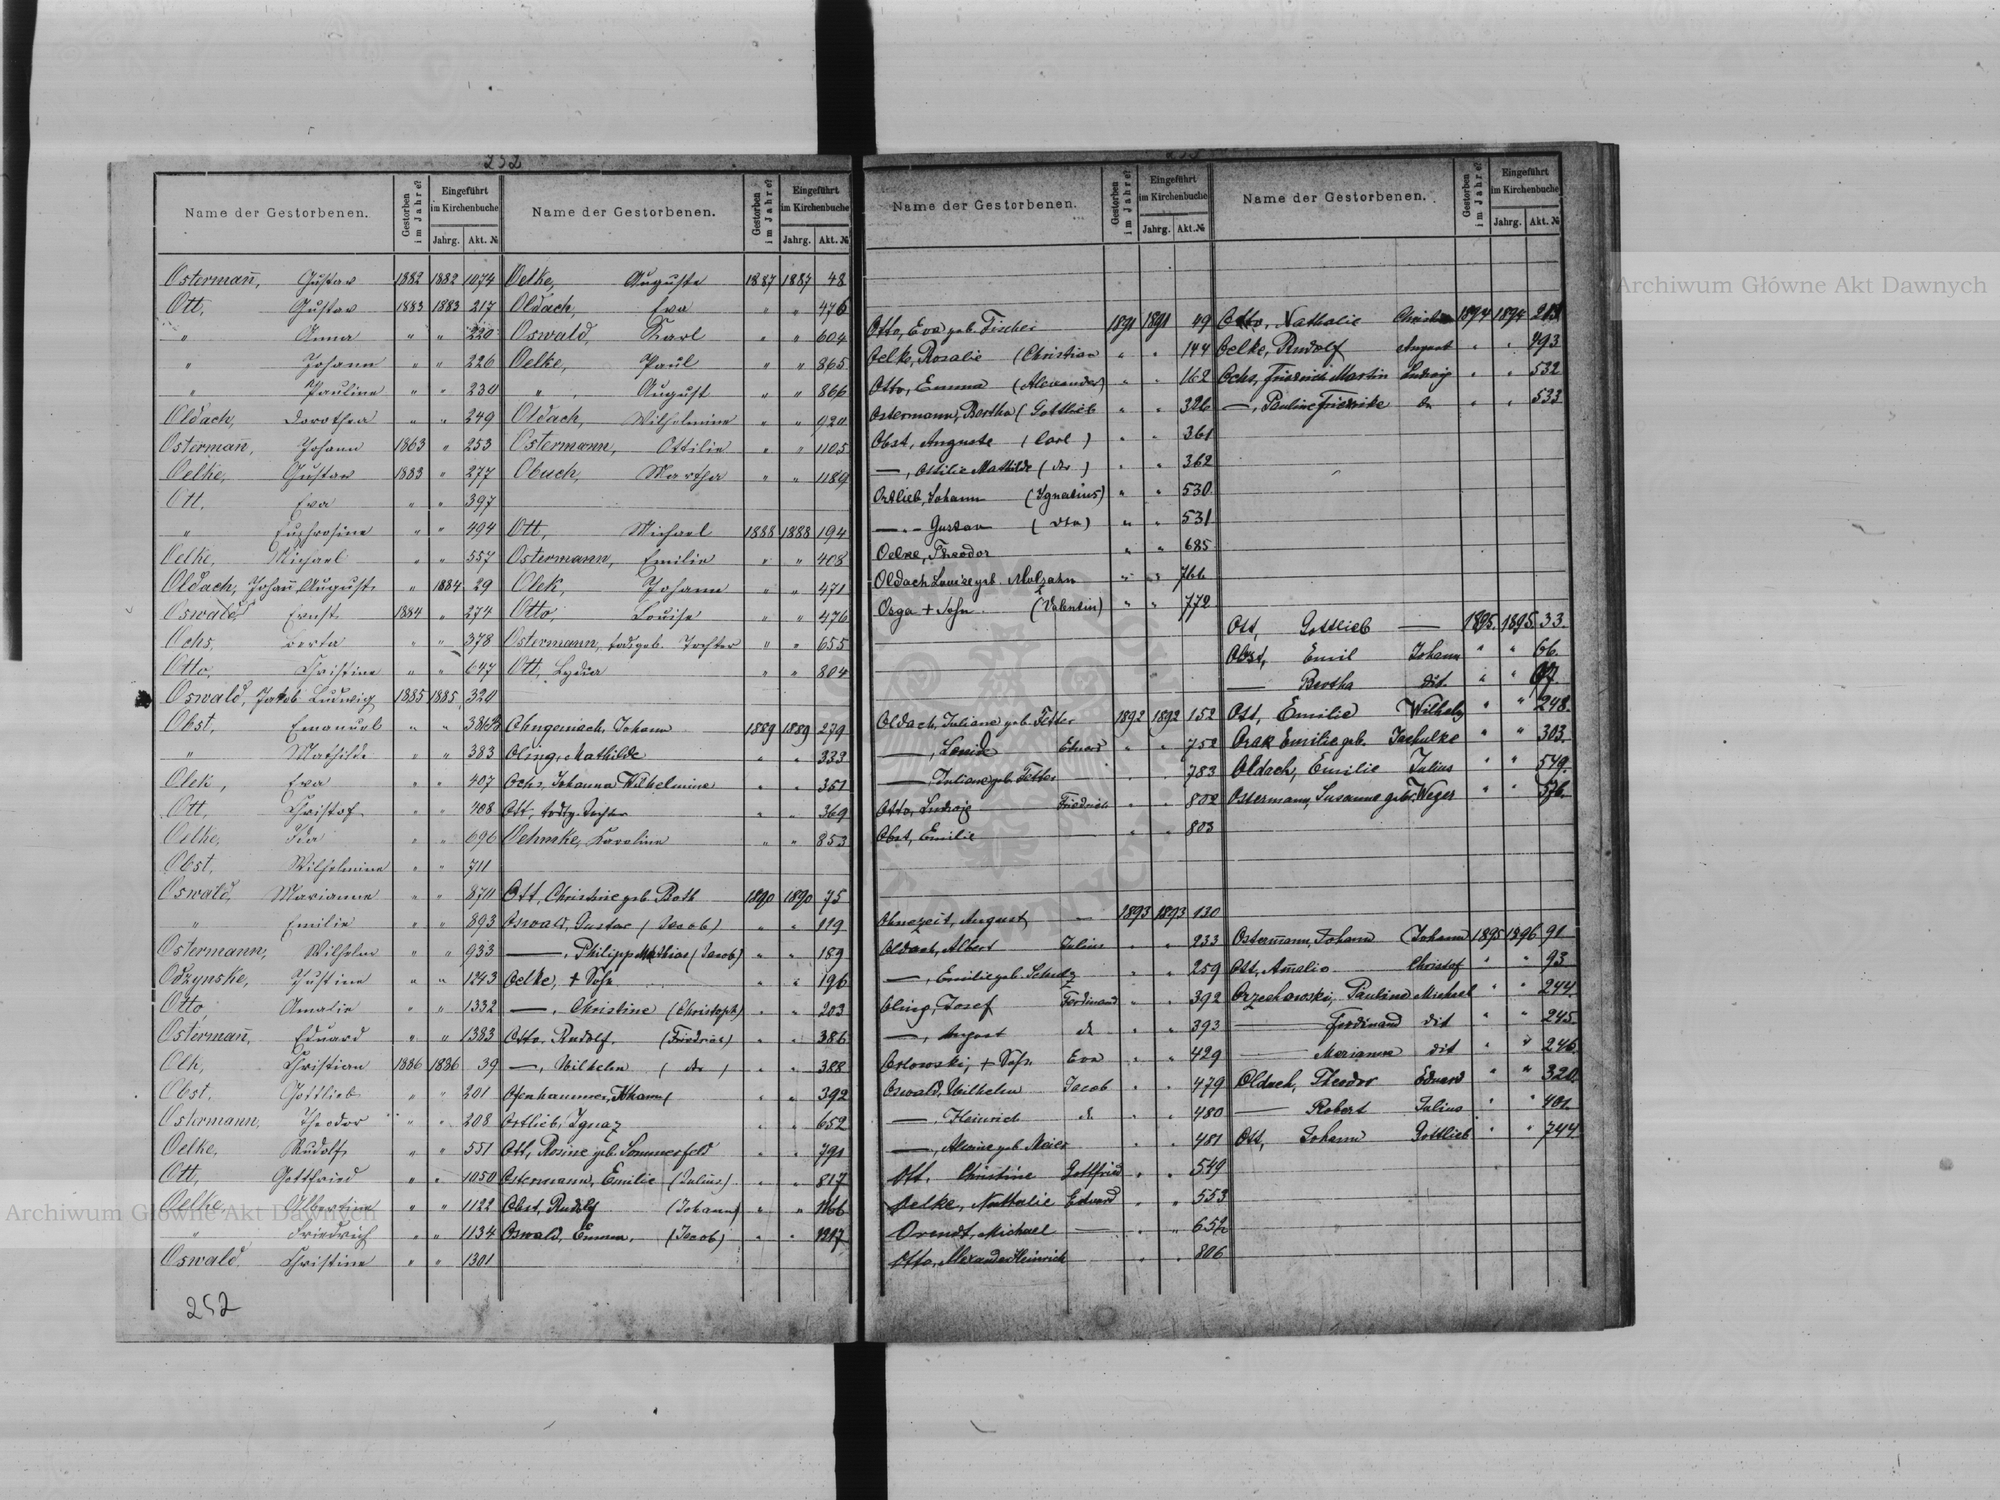 252
Name der Gestorbenen. Gestorben im Jahre? Eingeführt im Kirchenbuche Jahrg. Akt. №
Ostermañ, Gustav 1882 1882 1074
Ott, Gustav 1883 1883 217
" Anna " " 220
" Johann " " 226
" Pauline " " 234
Oldach, Dorothea " " 249
Osterman, Johann 1863 " 253
Oelke, Gustav 1883 " 277
Ott, Eva " " 397
" Euphrosine " " 494
Oelke, Michael " " 557
Oldach, Johañ August " 1884 29
Oswald, Ernst 1884 " 274
Ochs, Berta " " 378
Otto, Christine " " 647
Oswald, Jakob Ludwig 1885 1885 320
Obst, Emanuel " "
" Mathilde " " 383
Olek, Eva " " 407
Ott, Christof " " 408
Oelke, Ida " " 696
Obst, Wilhelmine " " 711
Oswald, Marianne " "
" Emilie " " 893
Ostermann, Wilhelm " " 933
Odzynske, Justine " " 1243
Otto, Amalie " " 1332
Ostermañ, Eduard " " 1383
Olk, Christian 1886 1886 39
Obst, Gottlieb " " 201
Ostermann, Theodor " " 208
Oelke, Rudolf " " 551
Ott, Gottfried " " 1050
Oelke, Albertine " " 1122
" Friedrich " " 1134
Oswald Christine " " 1301
252
Name der Gestorbenen. Gestorben im Jahre? Eingeführt im Kirchenbuche Jahrg. Akt. №
Oelke, Auguste 1887 1887 48
Oldach, Eva " " 476
Oswald, Karl " " 604
Oelke, Paul " " 865
" , August " " 866
Oldach, Wilhelmine " " 920
Ostermann, Ottilie " " 1105
Obuch, Martha " " 1189
Ott, Michael 1888 1888 194
Ostermann, Emilie " " 408
Olek, Johann " " 471
Otto, Louise " " 476
Ostermann, todtgeb. Tochter " " 655
Ott, Lydia " " 804
Ohngemach, Johann 1889 1889 279
Oling, Mathilde " " 333
Ochs, Johanna Wilhelmine " " 351
Ott, todtg. Tochter " " 369
Oehmke, Karoline " " 853
Ott, Christine geb. Both 1890 1890 75
Oswald, Gustav (Jacob) " " 119
—, Philipp Mathias (Jacob) " " 189
Oelke, + Sohn " " 196
—, Christine (Christoph) " " 203
Otto, Rudolf, (Friedrich) " " 386
—, Wilhelm (do) " " 388
Ofenhammer, Johann " " 392
Ortlieb, Ignaz " " 652
Ott, Rosine geb. Sommerfeld " " 791
Ostermann, Emilie (Julius) " " 817
Obst, Rudolf (Johann) " " 1166
Oswald, Emma, (Jacob) " " 1217
Name der Gestorbenen. Gestorben im Jahre? Eingeführt im Kirchenbuche Jahrg. Akt. №
Otto, Eva geb. Fischer 1891 1891 49
Oelke, Rosalie (Christian " " 144
Otto, Emma (Alexander) " " 162
Ostermann, Bertha (Gottlieb " " 326
Obst, Auguste (Carl) " " 361
—, Ottilie Mathilde (do) " " 362
Ortlieb, Johann (Ignatius) " " 530
—.- Gustav (dto) " " 531
Oelke, Theodor " " 685
Oldach Louise geb. Molzahn " " 766
Osga + Sohn (Valentin) " " 772
Oldach, Juliane geb. Fetter 1892 1892 152
—, Eduard " " 752
—, Juliane geb. Fetter 783
Otto, Ludwig Friedrich " " 802
Obst, Emilie — " " 803
Ohnezeit, August — 1893 1893 130
Oldach, Albert Julius " " 233
—, Emilie geb. Schulz " " 259
Oling, Josef Ferdinand " " 392
—, August do " " 393
Orlowski, + Sohn Eva " " 429
Oswald, Wilhelm Jacob " " 479
—, Heinrich do " " 480
—, geb. Meier " " 481
Ott, Christine Gottfried " " 549
Oelke, Nathalie Eduard " " 553
Orendt, Michael — " " 652
Otto, Alexander Heinrich " " 806
Name der Gestorbenen. Gestorben im Jahre? Eingeführt im Kirchenbuche Jahrg. Akt. №
Otto, Nathalie Christian 1894 1894
Oelke, Rudolf August " " 493
Ochs, Friedrich Martin Ludwig " " 532
—, Pauline Friedrike do " " 533
Ott, Gottlieb — 1895. 1895. 33.
Obst, Emil Johann " " 66.
— Bertha dit. " " 67.
Ott, Emilie Wilhelm " " 248.
Orak Emilie geb. Jaschulke " " 303.
Oldach, Emilie Julius " " 549.
Ostermann, Susanne gebr. Weger " " 576.
Ostermann, Johann Johann 1895 1896 91
Ott, Amalie Christof " " 93
Orzechowski, Pauline Michael " " 244.
— Ferdinand dit " " 245.
— Marianne dit " " 246.
Oldach, Theodor Eduard " " 320.
— Robert Julius " " 401.
Ott, Johann Gottlieb " " 744.
Archiwum Główne Akt Dawnych
Archiwum Główne Akt Dawnych